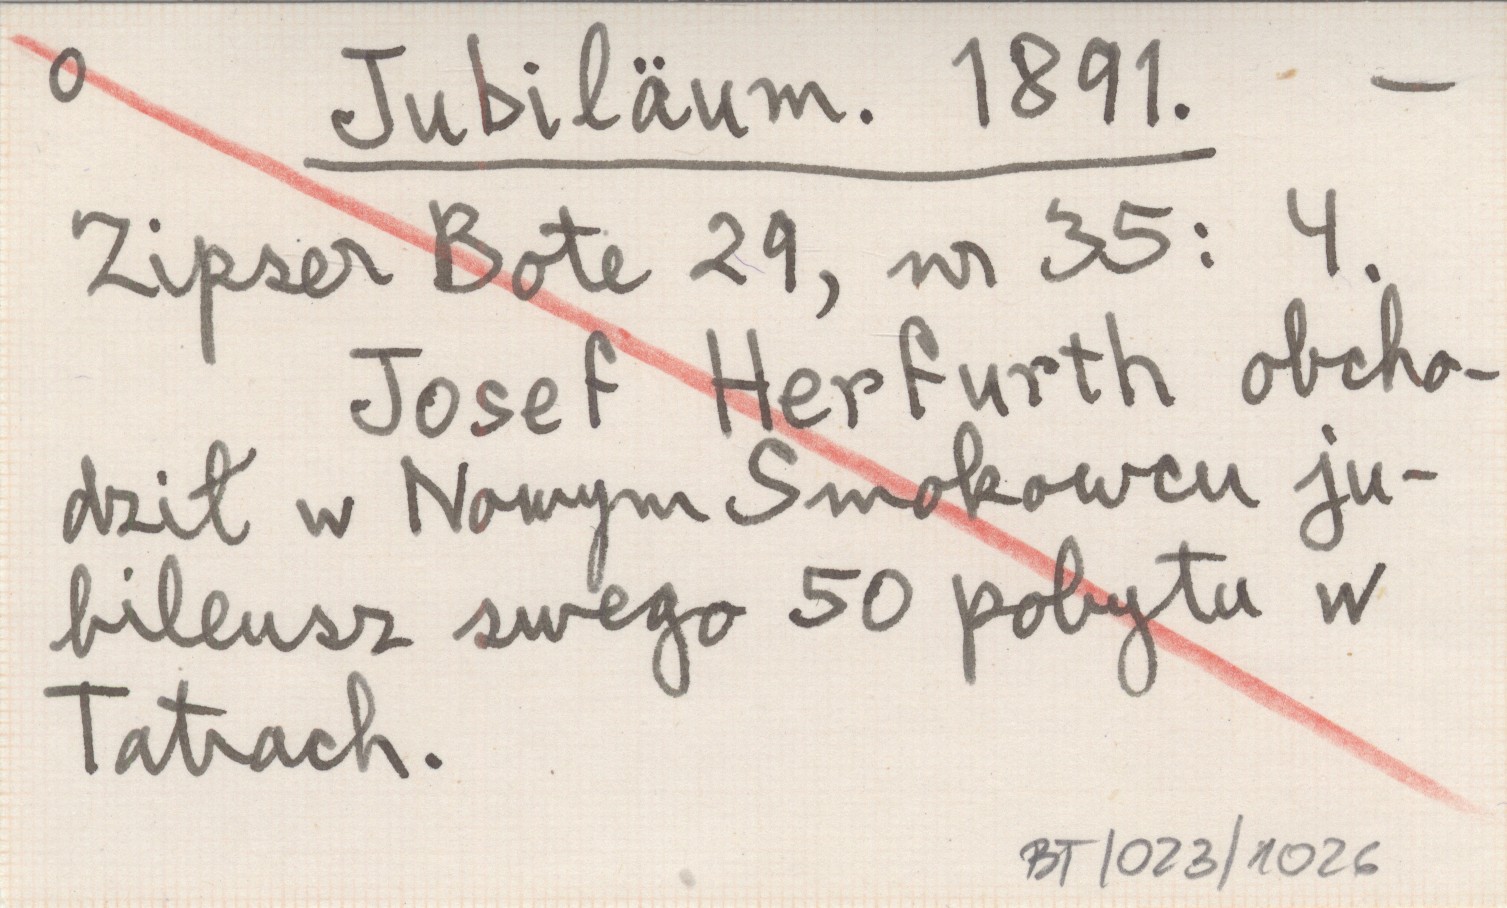 o Jubiläum. 1891. —
Zipser Bote 29, nr 35: 4.
Josef Herfurth obcho-
dził w Nowym Smokowcu ju-
bileusz swego 50 pobytu w
Tatrach.
BT/023/1026